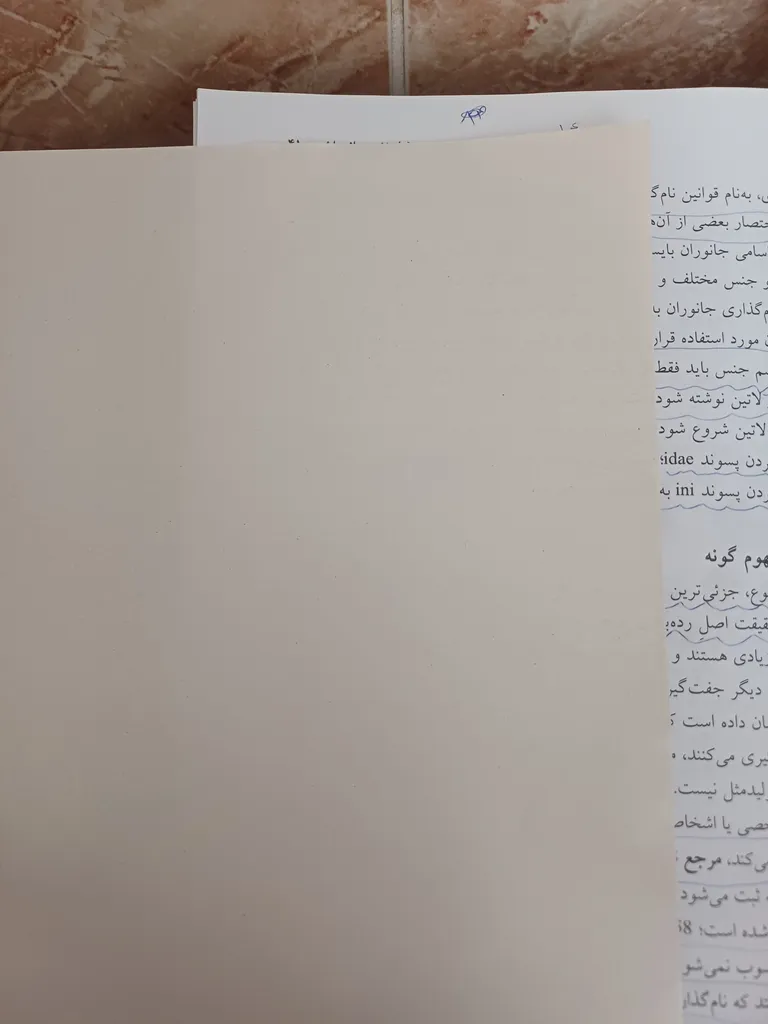 ۱۶
ی، به‌نام قوانین نام‌گ
ختصار بعضی از آن‌ه
سامی جانوران بایس
و جنس مختلف و
م‌گذاری جانوران به
ن مورد استفاده قرار
سم جنس باید فقط
لاتین نوشته شود
لاتین شروع شود
ردن پسوند idae؛
ردن پسوند ini به
هوم گونه
وع، جزئی‌ترین
قیقت اصلِ رده‌ب
زیادی هستند و
دیگر جفت‌گیر
ان داده است ک
یری می‌کنند، م
لیدمثل نیست.
خصی یا اشخاص
می‌کند، مرجع
ثبت می‌شود
شده است؛ 58
سوب نمی‌شو
ند که نام‌گذار